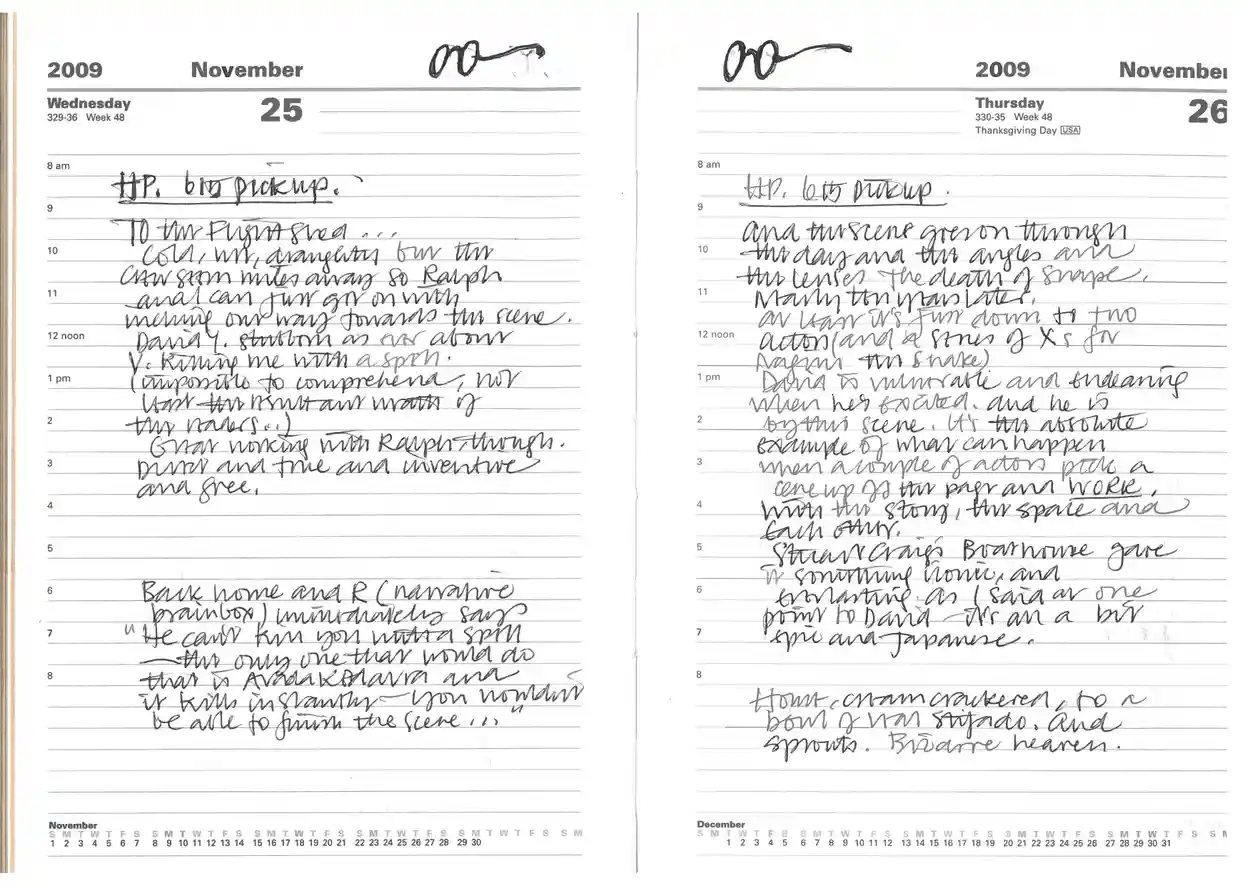 2009 November
Wednesday 25
329-36 Week 48
8 am
HP. 615 pickup.
9
To the Flight Shed ...
10
Cold, wet, draughty but the
crew seem miles away so Ralph
11
and I can just get on with
inching our way towards the scene.
12 noon
David Y. stubborn as ever about
V. killing me with a spell.
1 pm
(impossible to comprehend, not
least the resultant wrath of
2
the readers...)
Great working with Ralph, though.
3
Direct and true and inventive
and free.
4
5
6
Back home and R (narrative
brainbox) immediately says
7
"He can't kill you with a spell
— the only one that would do
8
that is Avada Kedavra and
it kills instantly – you wouldn't
be able to finish the scene ..."
November
S M T W T F S S M T W T F S S M T W T F S S M T W T F S S M T W T F S S M
1 2 3 4 5 6 7 8 9 10 11 12 13 14 15 16 17 18 19 20 21 22 23 24 25 26 27 28 29 30
2009 November
Thursday 26
330-35 Week 48
Thanksgiving Day USA
8 am
HP. 615 pickup.
9
And the scene goes on through
10
the day and the angles and
the lenses. The death of Snape.
11
Nearly ten years later.
At least it's just down to two
12 noon
actors (and a series of Xs for
Nagini the snake)
1 pm
David is vulnerable and endearing
when he's excited. And he is
2
by this scene. It's the absolute
example of what can happen
3
when a couple of actors pick a
scene up off the page and WORK.
4
With the story, the space and
each other.
5
Stuart Craig's Boathouse gave
it something ironic, and
6
everlasting. As I said at one
point to David – it's all a bit
7
epic and Japanese.
8
Home, cream crackered, to a
bowl of veal stifado. And
sprouts. Bizarre heaven.
December
S M T W T F S S M T W T F S S M T W T F S S M T W T F S S M T W T F S S M
1 2 3 4 5 6 7 8 9 10 11 12 13 14 15 16 17 18 19 20 21 22 23 24 25 26 27 28 29 30 31